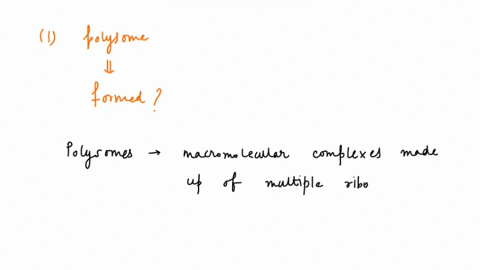 (1) polysome
⇓
formed ?
Polysomes → macromolecular complexes made
up of multiple ribo